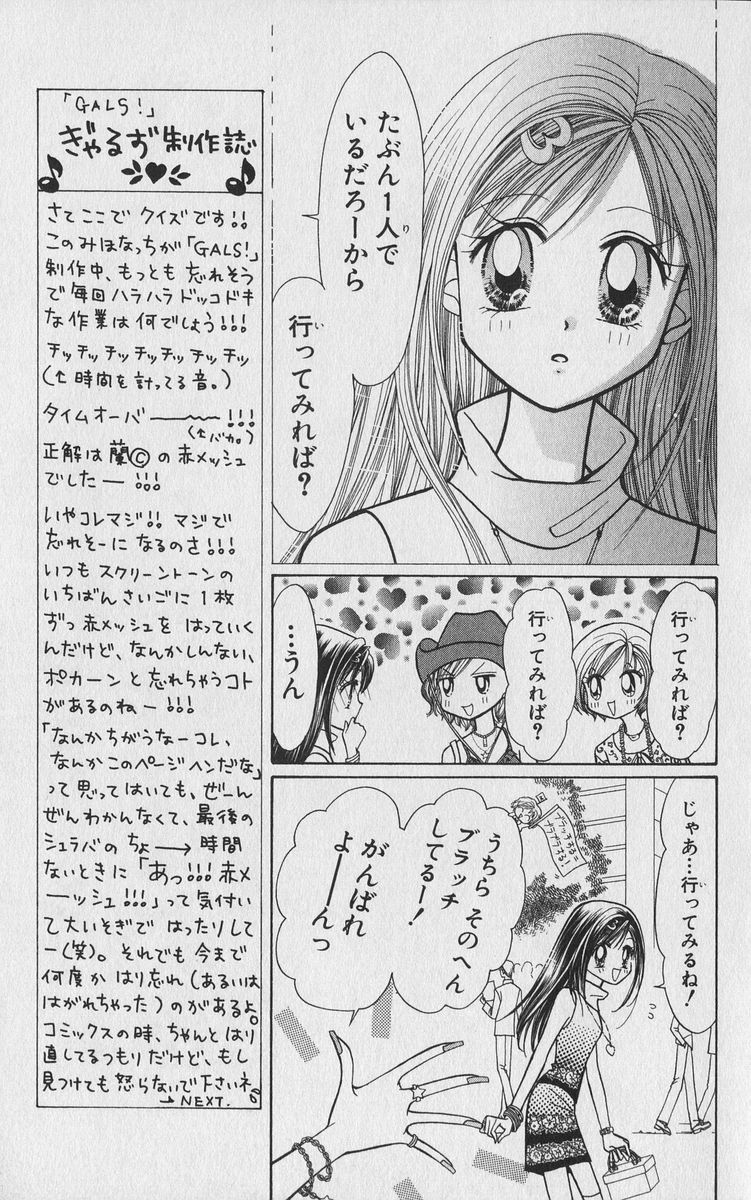 たぶん1人で
いるだろーから
行ってみれば?
行ってみれば?
行ってみれば?
…うん
じゃあ…行ってみるね!
うちら そのへん
ブラッチ
してるー!
がんばれ
よーーんっ
「GALS!」
ぎゃるず制作誌
さてここで クイズです!!
このみほなっちが「GALS!」
制作中、もっとも 忘れそう
で毎回ハラハラドッコドキ
な作業は何でしょう!!!
チッチッチッチッチッチッチッ
(↑時間を計ってる音。)
タイムオーバー〜〜!!!
(↑バカ。)
正解は 蘭© の 赤メッシュ
でしたー!!!
いやコレマジ!! マジで
忘れそーに なるのさ!!!
いつも スクリーントーンの
いちばんさいごに 1枚
ずつ 赤メッシュを はっていく
んだけど、なんかしんない、
ポカーン と 忘れちゃうコト
があるのねー!!!
「なんかちがうなーコレ、
なんかこのページヘンだな」
って 思ってはいても、ぜーん
ぜんわかんなくて、最後の
シュラバの ちょ→時間
ないときに「あっ!!!赤メ
ーッシュ!!!」って 気付い
て大いそぎで はったりして
ー(笑)。それでも 今まで
何度か はり忘れ(あるいは
はがれちゃった)のがあるよ。
コミックスの時、ちゃんと はり
直してるつもりだけど、もし
見つけても 怒らないで下さいネ。
→NEXT.